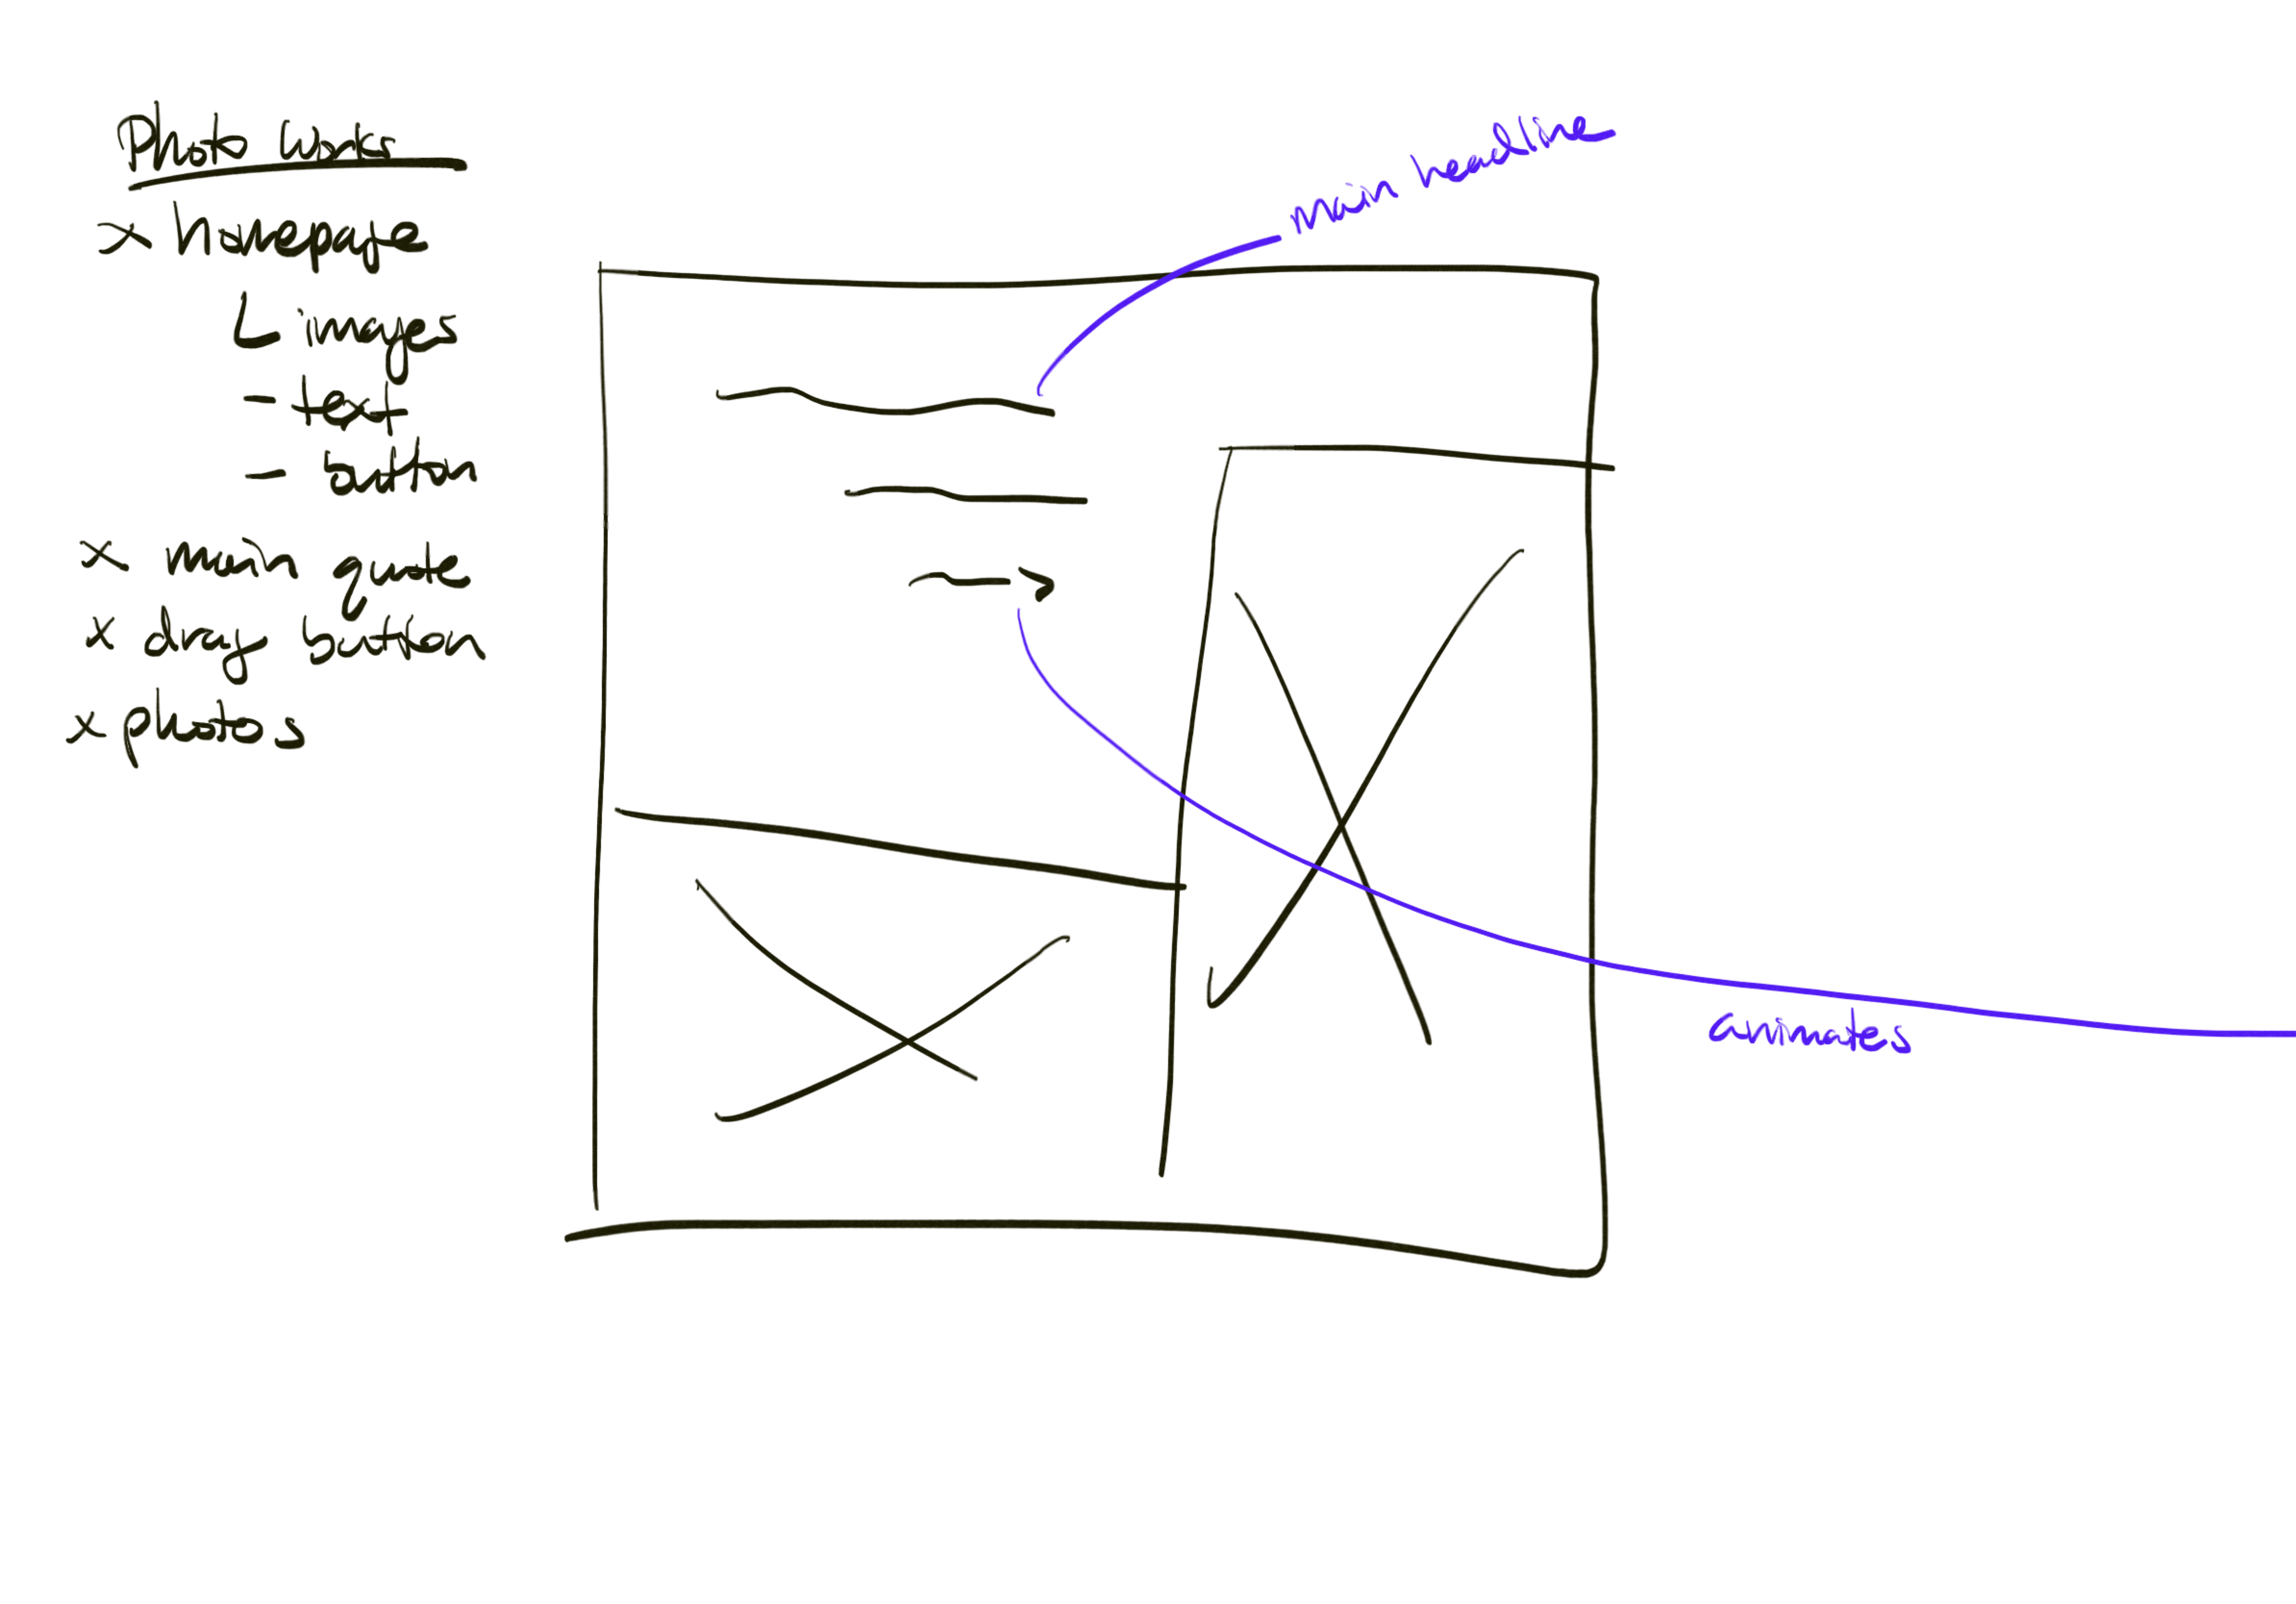 Photo Works
x homepage
images
- text
- button
x main quote
x drag button
x photos
main headline
animates